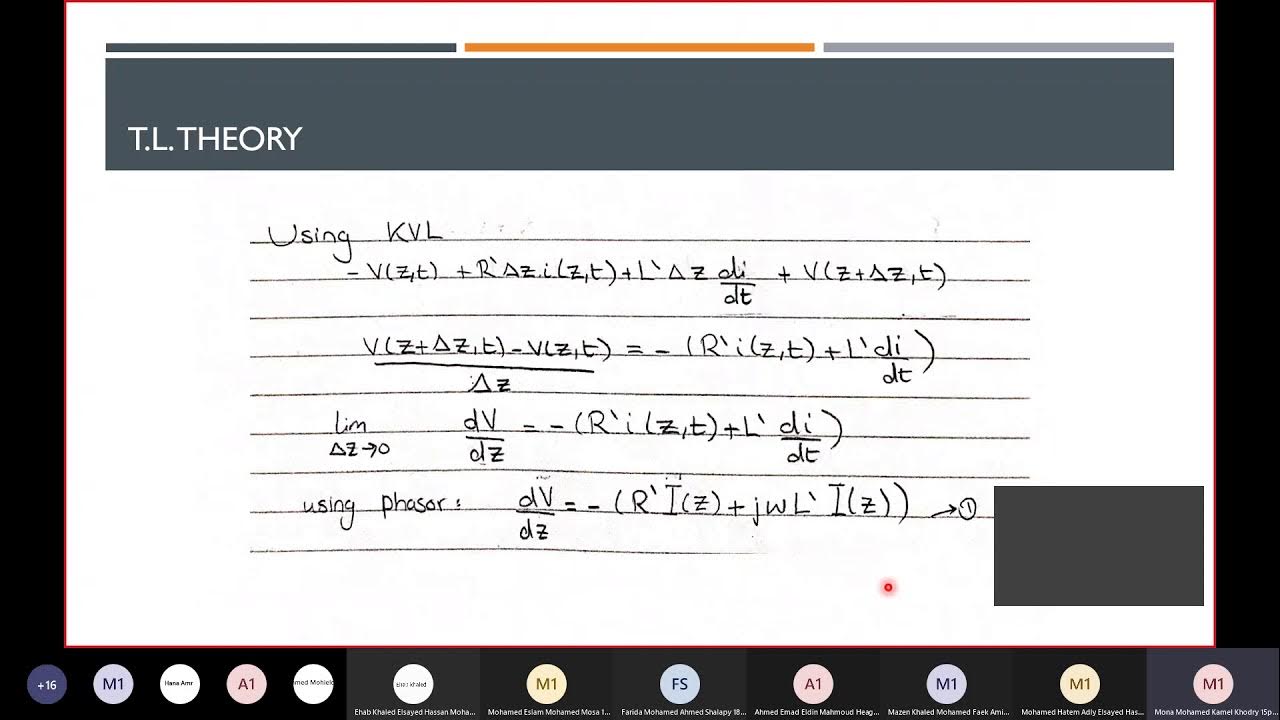 T.L. THEORY
Using KVL
- V(z,t) + R` Δz.i(z,t) + L` Δz di/dt + V(z+Δz,t)
V(z+Δz,t) - V(z,t) / Δz = - (R` i(z,t) + L` di/dt)
lim Δz→0 dV/dz = - (R` i(z,t) + L` di/dt)
using phasor: dV/dz = - (R` I(z) + jωL` I(z)) → ①
+16
M1
Hana Amr
A1
med Mohiel
Ehab Khaled
Ehab Khaled Elsayed Hassan Moha...
M1
Mohamed Eslam Mohamed Mosa 1...
FS
Farida Mohamed Ahmed Shalapy 18...
A1
Ahmed Emad Eldin Mahmoud Heag...
M1
Mazen Khaled Mohamed Faek Ami...
M1
Mohamed Hatem Adly Elsayed Has...
M1
Mona Mohamed Kamel Khodry 15p...